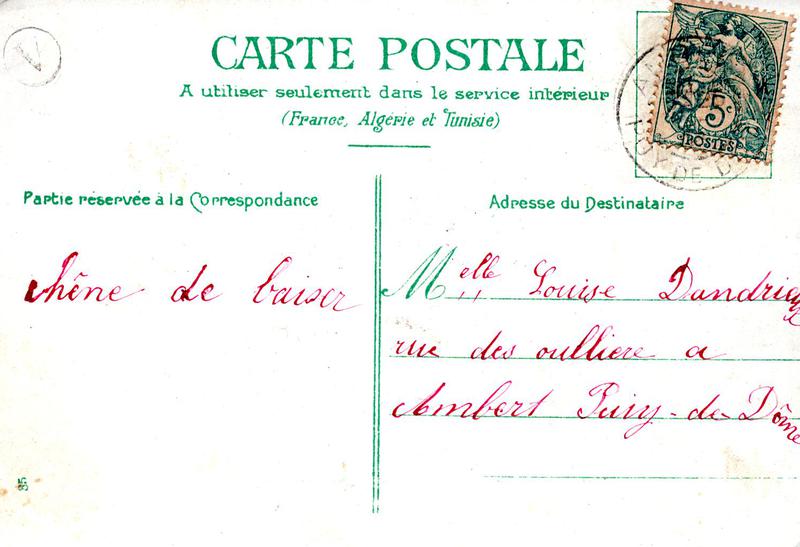 CARTE POSTALE
A utiliser seulement dans le service intérieur
(France, Algérie et Tunisie)
Partie réservée à la Correspondance
Adresse du Destinataire
chêne de baiser
Melle Louise Dandrieux
rue des oulliere a
Ambert Puiy-de-Dôme
5c
POSTES
PUY-DE-D
V
35